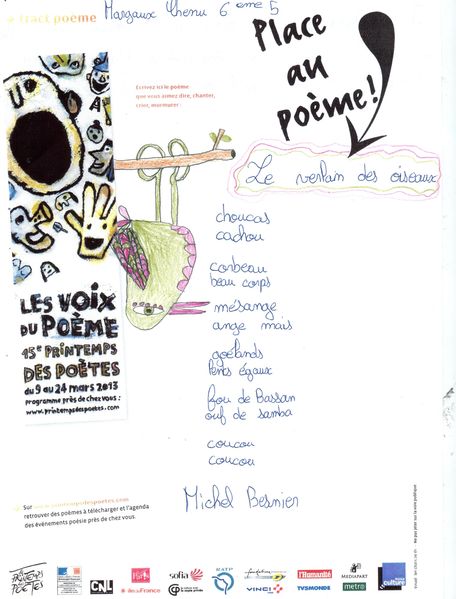 tract poème
Margaux Chenu 6 eme 5
Place
au
poème!
Ecrivez ici le poème
que vous aimez dire, chanter,
crier, murmurer
Le verlan des oiseaux
choucas
cachou
corbeau
beau corps
mésange
ange mais
goélands
lents égaux
fou de Bassan
ouf de samba
coucou
coucou
Michel Besnier
LES VOIX
DU POÈME
15e PRINTEMPS
DES POÈTES
du 9 au 24 mars 2013
programme près de chez vous :
www.printempsdespoetes.com
Sur www.printempsdespoetes.com
retrouver des poèmes à télécharger et l'agenda
des événements poésie près de chez vous.
PRINTEMPS
POÈTES
CNL
îledeFrance
sofia
RATP
VINCI
l'Humanité
TV5MONDE
MEDIAPART
france
culture